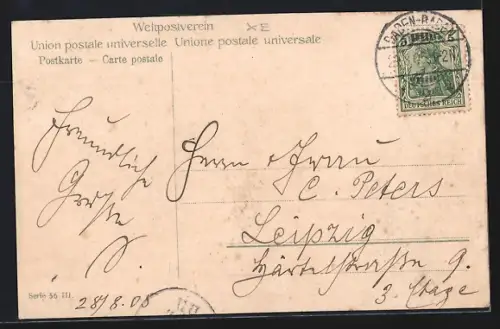 Weltpostverein
Union postale universelle Unione postale universale
Postkarte – Carte postale
BADEN-BAD
DEUTSCHES REICH
Freundliche
Grüsse
S.
Herrn + Frau
C. Peters
Leipzig
Härtelstrasse 9.
3. Etage
Serie 56 III.
28/8.06